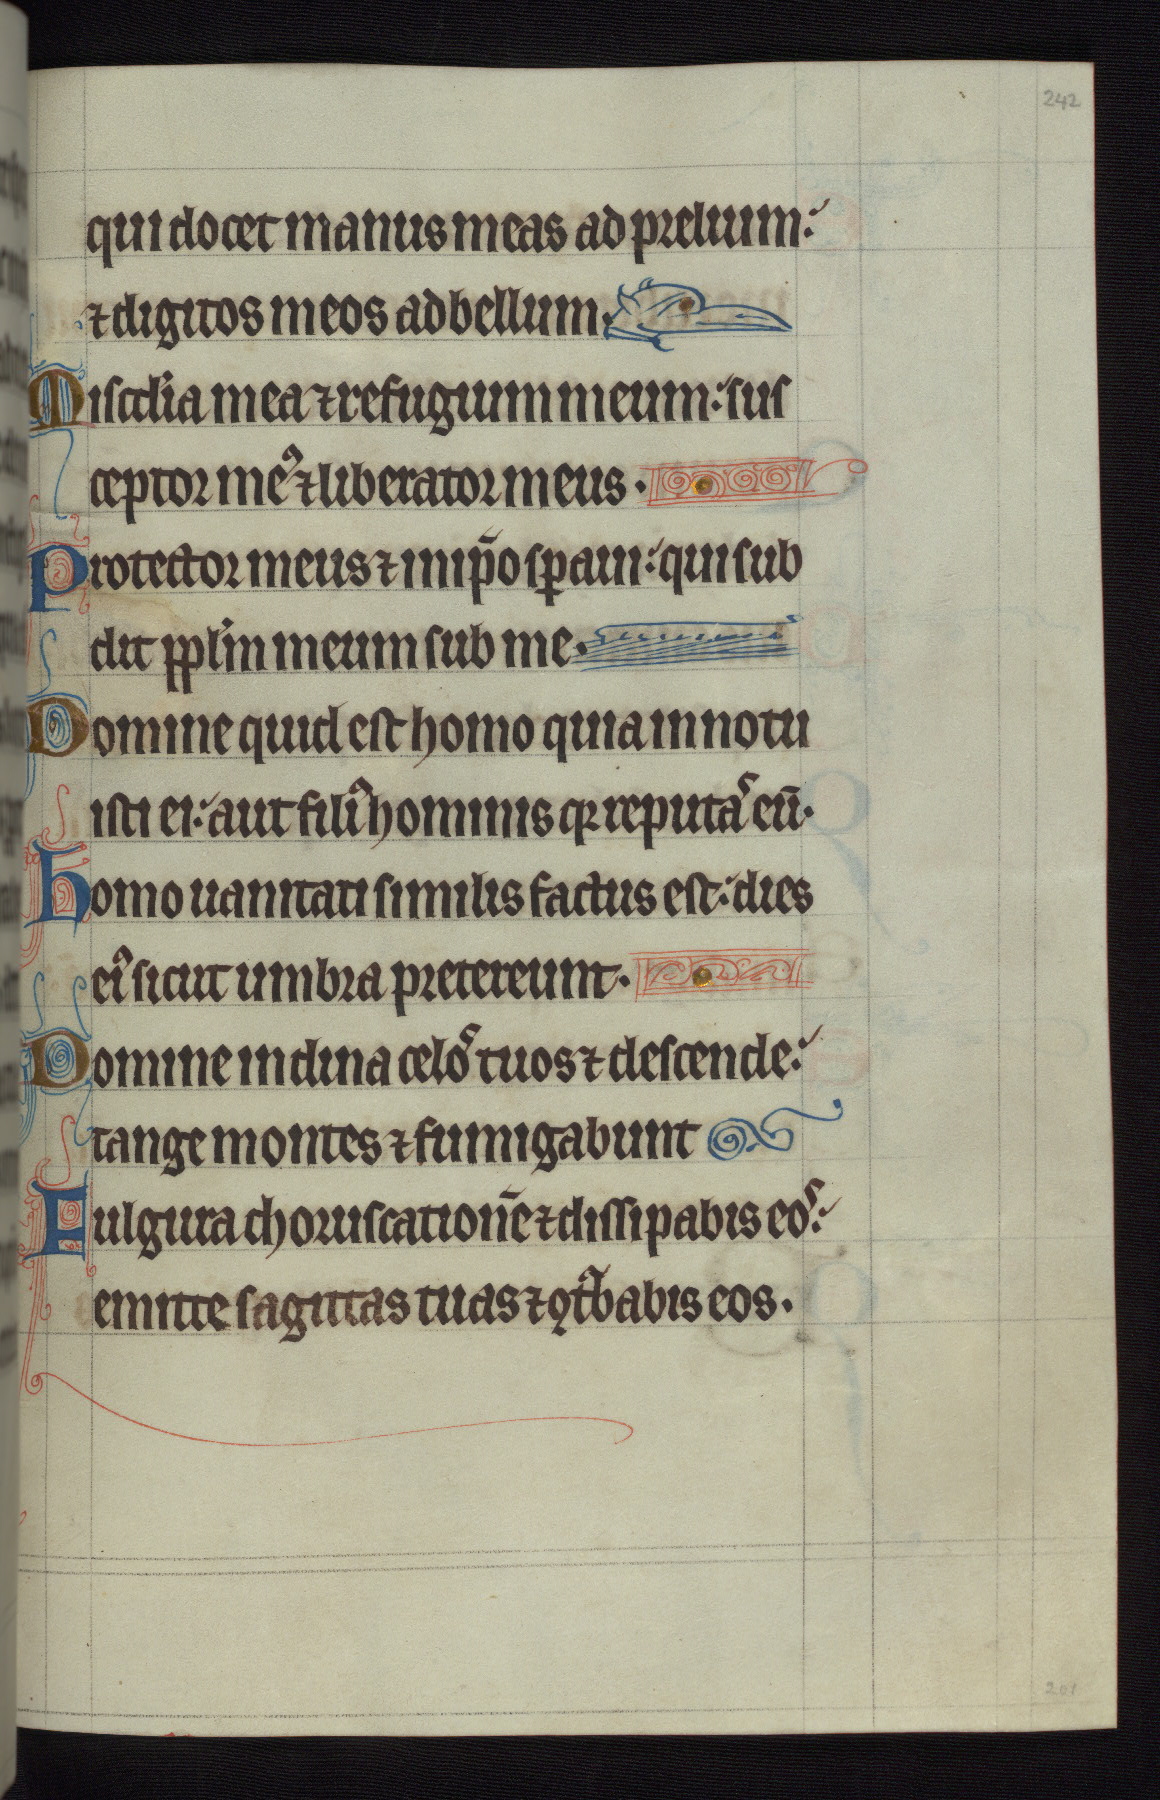 242
qui docet manus meas ad prelium:
⁊ digitos meos ad bellum.
Miscd'ia mea ⁊ refugium meum: sus
ceptor me⁹ ⁊ liberator meus.
Protector meus ⁊ in ip̄o sꝑaui: qui sub
dit ppl'm meum sub me.
Domine quid est homo quia innotu
isti ei: aut fili⁹ hominis qꝛ reputaˢ eū.
homo uanitati similis factus est: dies
ei⁹ sicut umbra pretereunt.
Domine inclina celoˢ tuos ⁊ descende:
tange montes ⁊ fumigabunt
Fulgura choruscationē ⁊ dissipabis eoˢ:
emitte sagittas tuas ⁊ ꝯtᵃbabis eos.
201